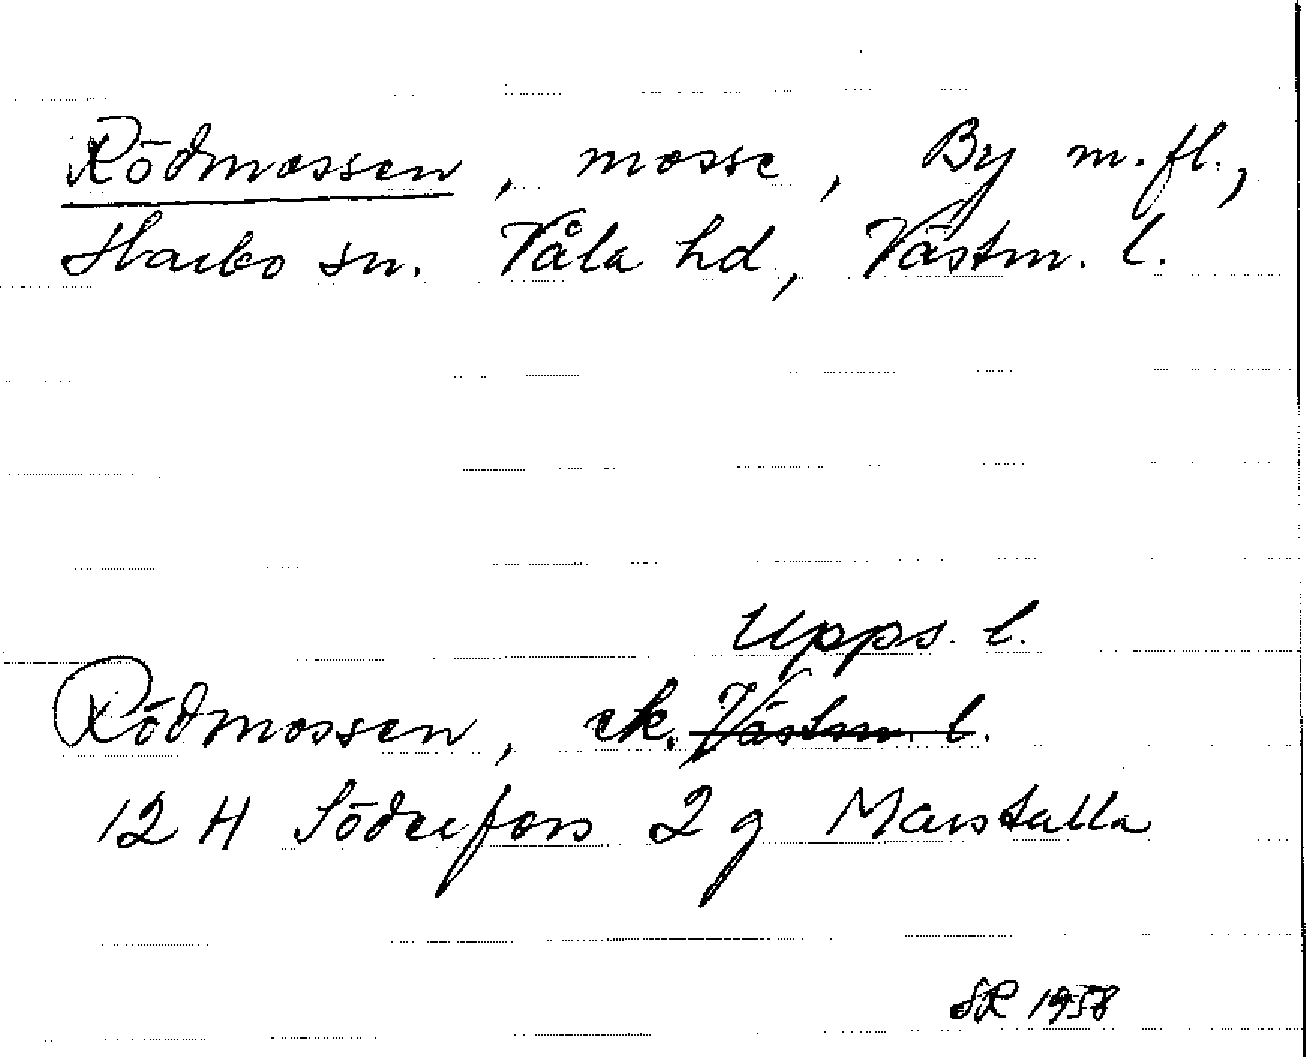 Rödmossen, mosse, By m.fl.,
Harbo sn. Våla hd, Västm. l.
Upps. l.
Rödmossen, ek. Västm. l.
12 H Söderfors 2 g Marstalla
SR 1958